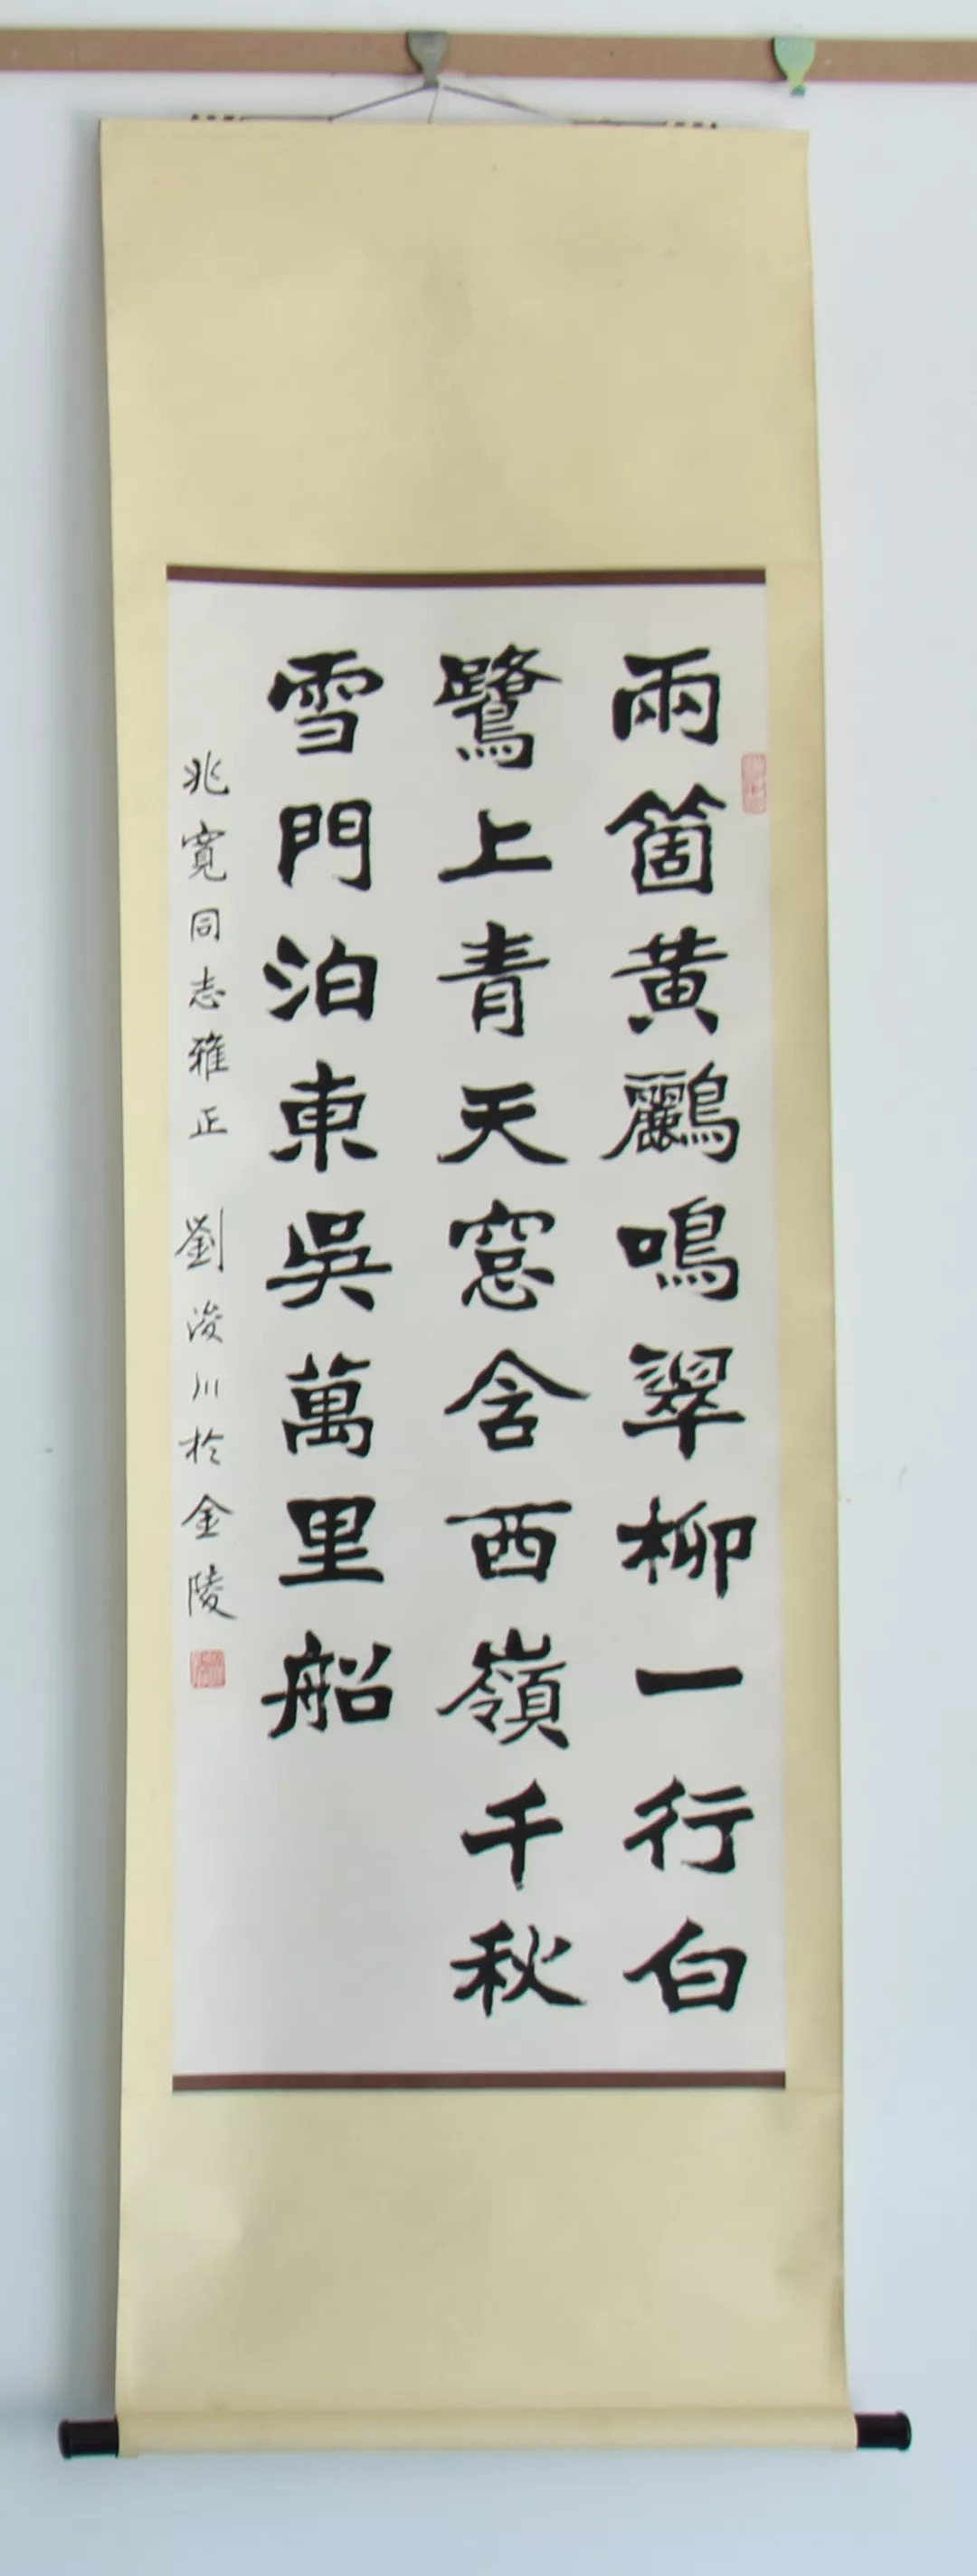 兩箇黃鸝鳴翠柳一行白
鷺上青天窓含西嶺千秋
雪門泊東吳萬里船
兆寬同志雅正 劉浚川於金陵